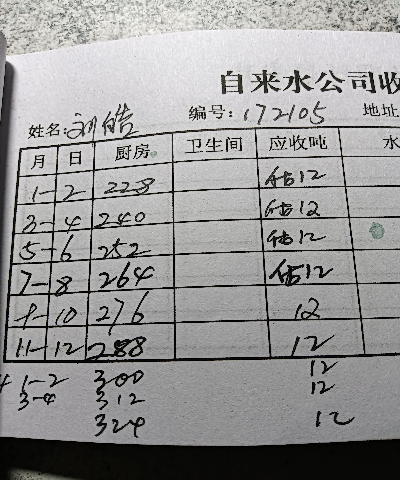 自来水公司收
姓名: 刘皓 编号: 172105 地址
月 日 厨房 卫生间 应收吨 水
1-2 228 估12
3-4 240 估12
5-6 252 估12
7-8 264 估12
9-10 276 12
11-12 288 12
1-2 300 12
3-4 312 12
324 12